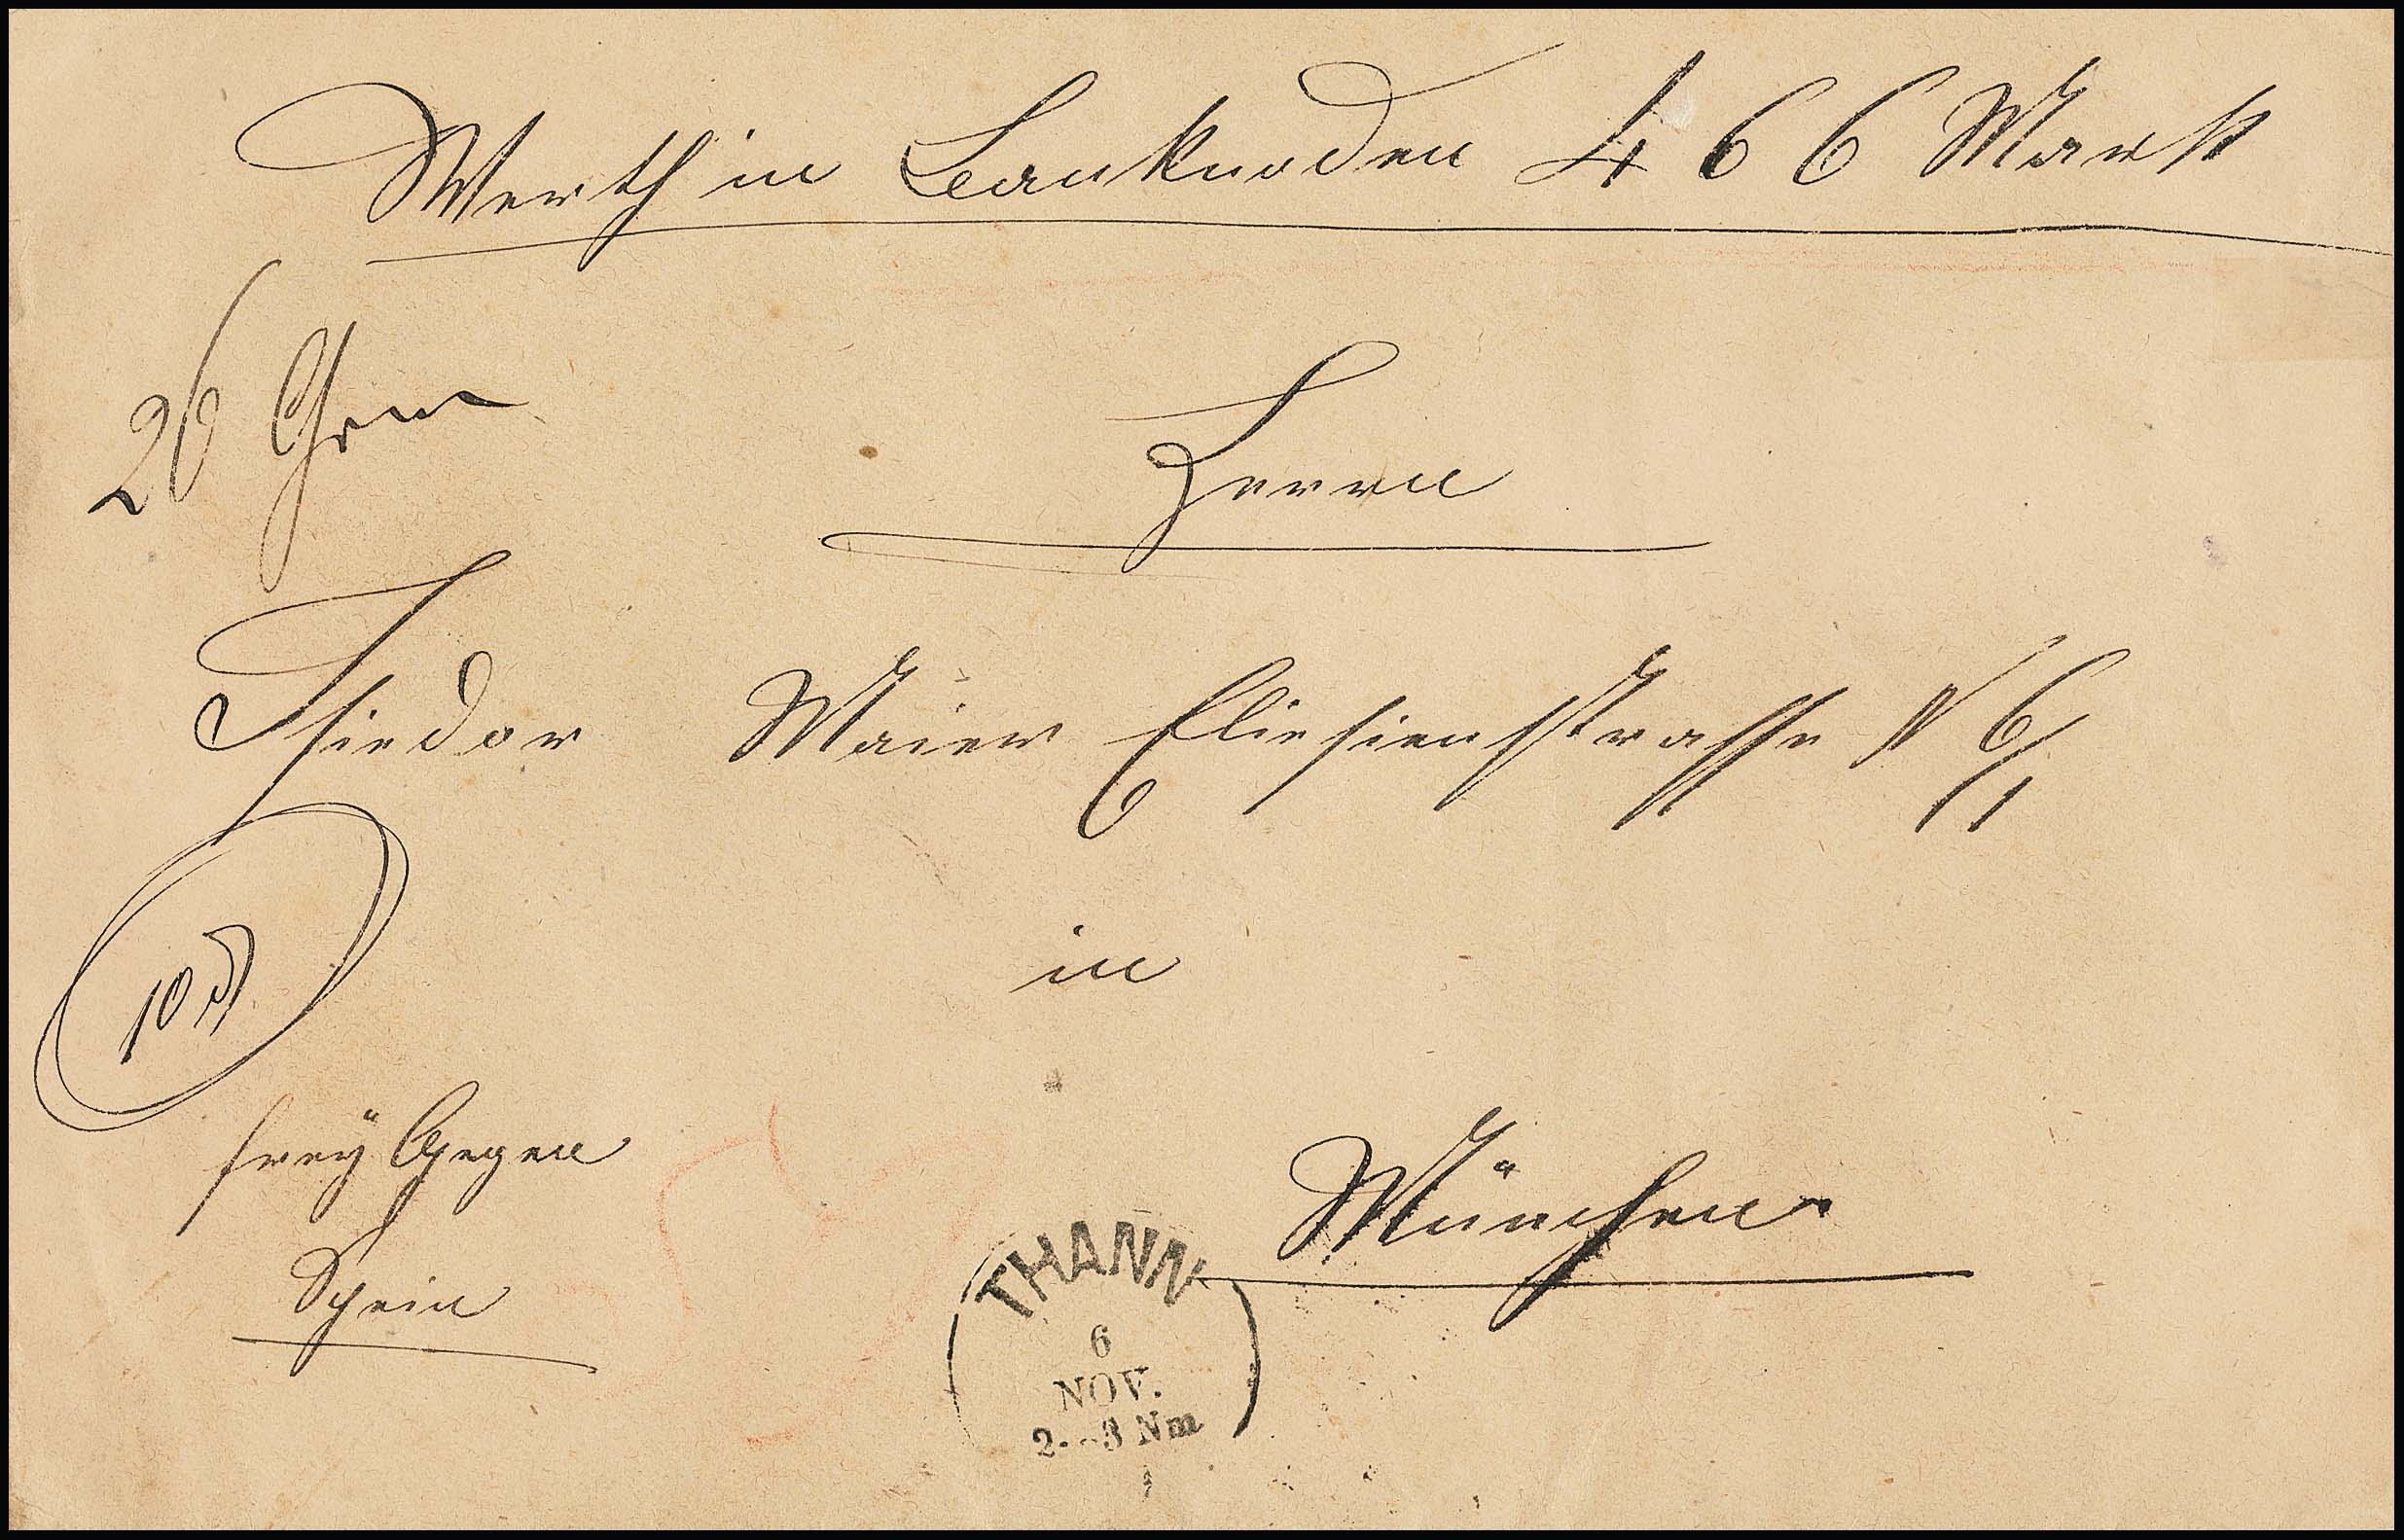 Werth in Banknoden 466 Mark
26 Grm
Herrn
Fsiedor Maier Eliesienstrasse N 6/1
in
frey Gegen
Schein
München
THANN
6
NOV.
2--3 Nm